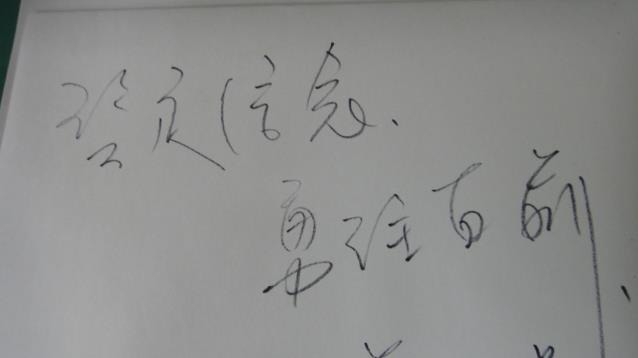 坚定信念、
勇往直前、